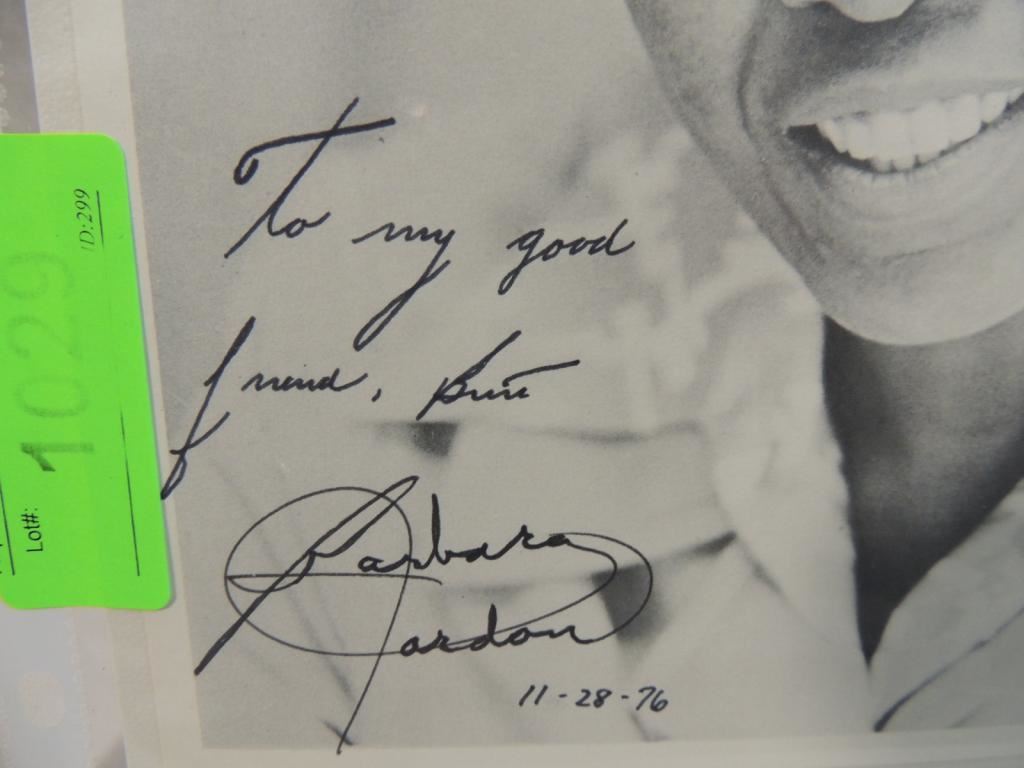 To my good
friend,
Barbara
Jordan
11-28-76
Lot#: 1029
ID:299